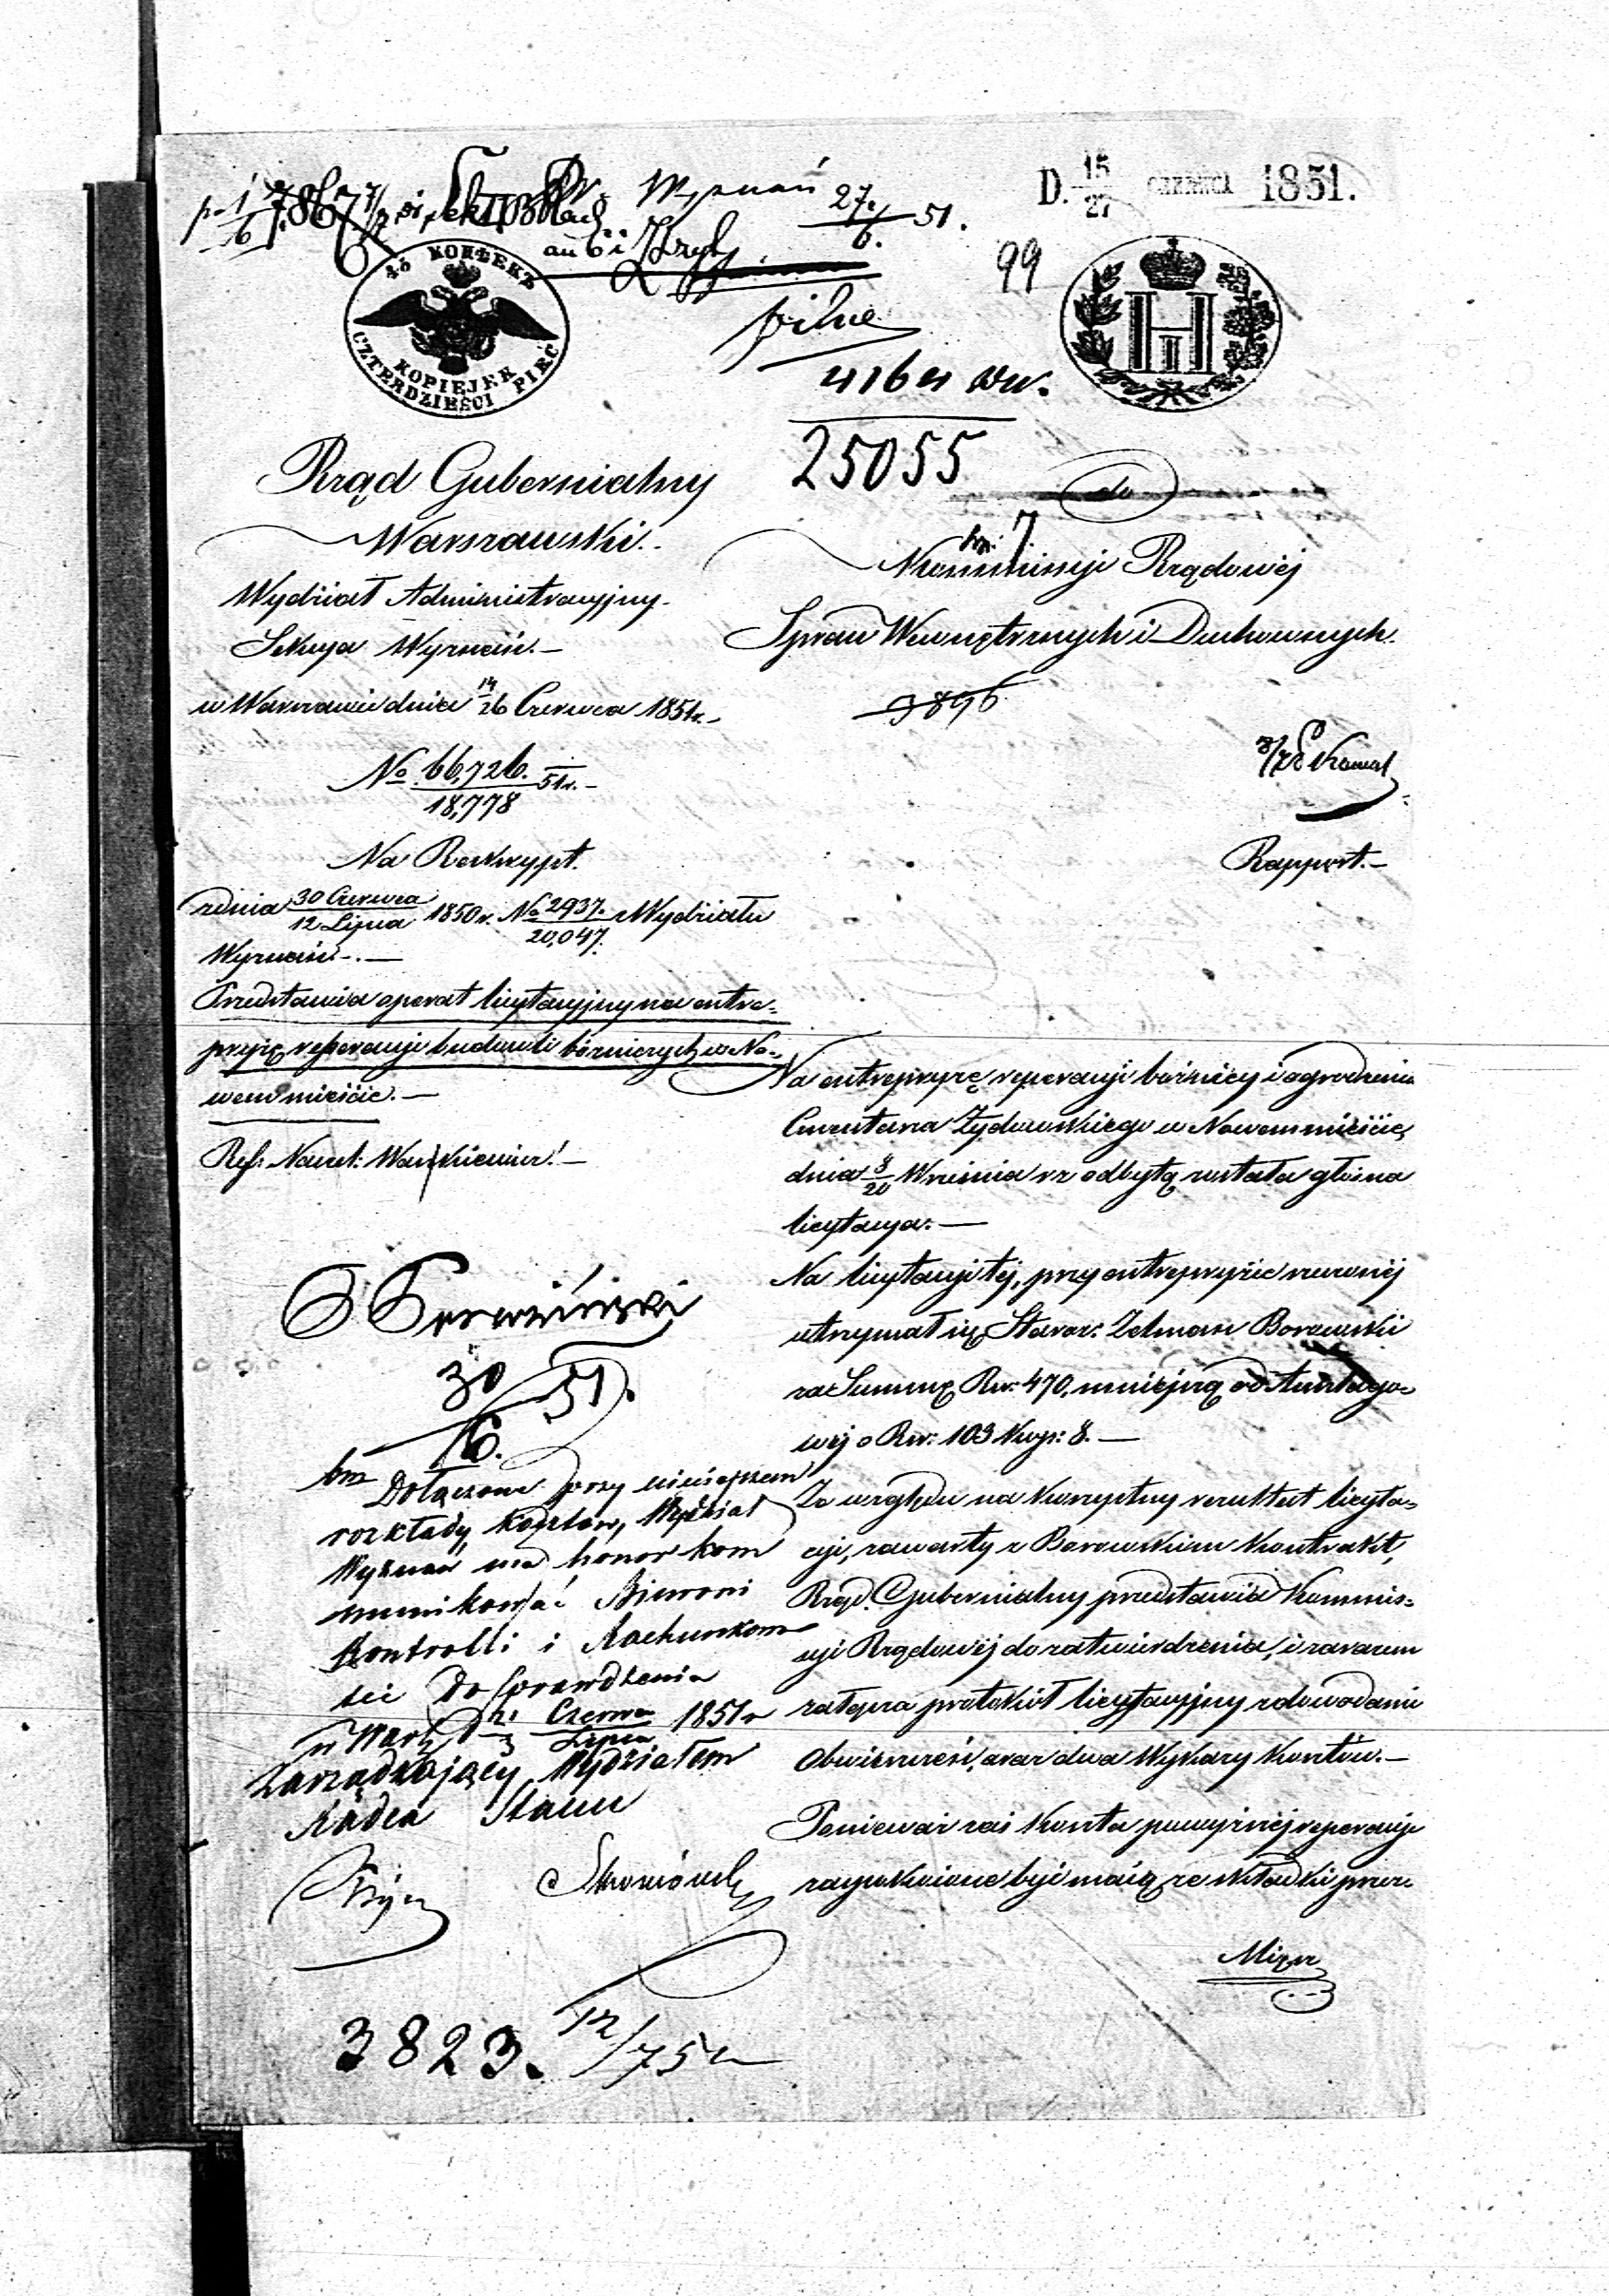 D. 15/27 CZERWCA 1851.
Wyznań 27/6. 51.
99
45 KOPIEJEK
KOPIEJEK
CZTERDZIEŚCI PIĘĆ
H
I
pilne
4164 ww.
25055
Rząd Gubernialny
Warszawski.
Wydział Administracyjny.
Sekcya Wyznań.—
w Warszawie dnia 14/26 Czerwca 1851r.—
No 66,726./18,778 51r.—
Na Reskrypt.
z dnia 30 Czerwca/12 Lipca 1850r. No 2937./20,047. z Wydziału
Wyznań.—
Przedstawia operat licytacyjny na entre-
pryzę reperacyi budowli bożniczych w No-
wem mieście.—
Ref: Naczel:
do
Kommissyi Rządowéj
Spraw Wewnętrznych i Duchownych.
9896
Rapport.—
Na entrepryzę reperacyi bóżnicy i ogrodzenia
Cmentarza Żydowskiego w Nowem mieście,
dnia 8/20 Września rz odbytą została głośna
licytacya.—
Na licytacyi téj, przy entrepryzie rzeczonéj
utrzymał się Staroz: Zelman Borowski
za Summę Rsr: 470, mniejszą od Anszlago-
wéj o Rsr: 103 Kop: 8.—
Ze względu na korzystny rezultat licyta-
cyi, zawarty z Borowskim Kontrakt,
Rząd Gubernialny przedstawia Kommis-
syi Rządowéj do zatwierdzenia, i zarazem
załącza protokół licytacyjny z dowodami
obwieszczeń, oraz dwa Wykazy Kosztów.—
Ponieważ zaś koszta powyższéj reperacyi
zaspokoione być maią ze składki przez
30/6. 51.
Dołączone przy niniejszem
rozkłady kosztów, Wydział
Wyznań ma honor kom
munikować Biurowi
Kontrolli i Rachunkowo
ści do sprawdzenia
w Warsz d 21/3 Czerwca/Lipca 1851 r
Zarządzający Wydziałem
Radca Stanu
3823. 12/7 51